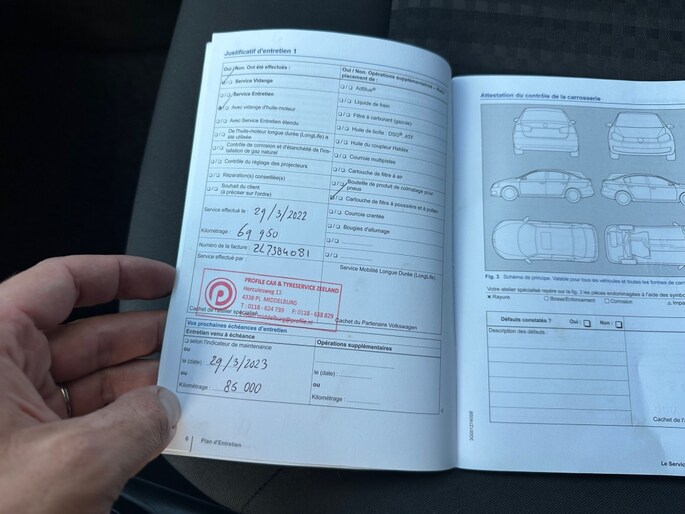 Justificatif d'entretien 1
Oui / Non. Ont été effectués :
Service Vidange
Service Entretien
Avec vidange d'huile-moteur
Avec Service Entretien étendu
De l'huile-moteur longue durée (LongLife) a été utilisée
Contrôle de corrosion et d'étanchéité de l'installation de gaz naturel
Contrôle du réglage des projecteurs
Réparation(s) conseillée(s)
Souhait du client
(à préciser sur l'ordre)
Oui / Non. Opérations supplémentaires –
placement de :
AdBlue®
Liquide de frein
Filtre à carburant (gazole)
Huile de boîte : DSG®, ATF
Huile du coupleur Haldex
Courroie multipistes
Cartouche de filtre à air
Bouteille de produit de colmatage pour pneus
Cartouche de filtre à poussière et à pollen
Courroie crantée
Bougies d'allumage
Service effectué le : 29/3/2022
Kilométrage : 69 950
Numéro de la facture : 2L7384081
Service effectué par :
Service Mobilité Longue Durée (LongLife)
PROFILE CAR & TYRESERVICE ZEELAND
Herculesweg 13
4338 PL MIDDELBURG
T : 0118 - 624 799 F: 0118 - 638 829
middelburg@profile.nl
Cachet de l'atelier spécialisé
Cachet du Partenaire Volkswagen
Vos prochaines échéances d'entretien
Entretien venu à échéance
selon l'indicateur de maintenance
ou
le (date) : 29/3/2023
ou
Kilométrage : 85 000
Opérations supplémentaires
le (date) :
ou
Kilométrage :
8 Plan d'Entretien
Attestation du contrôle de la carrosserie
Fig. 3 Schéma de principe. Valable pour tous les véhicules et toutes les formes de
Votre atelier spécialisé repère sur la fig. 3 les pièces endommagées à l'aide des
Rayure Bosse/Enfoncement Corrosion
Défauts constatés ? Oui : Non :
Description des défauts :
Cachet de
Le Servic